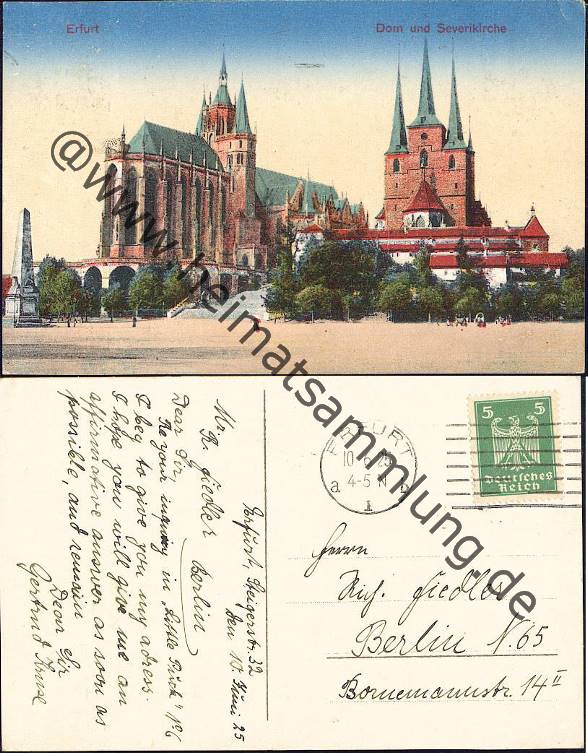 Erfurt
Dom und Severikirche
@www.heimatsammlung.de
Erfurt, Steigerstr. 32
den 10. Juni 25
Mr.
R. Fiedler
Berlin
Dear Sir,
Re your inquiry in „Little Puck" No 6
I beg to give you my adress.
I hope you will give me an
affirmative answer as soon as
possible, and remain
Dear Sir
Gertrud
ERFURT
10 6 25
4-5 N
a 1
5 5
Deutsches
Reich
Herrn
Rich. Fiedler
Berlin N. 65
Bornemannstr. 14 II